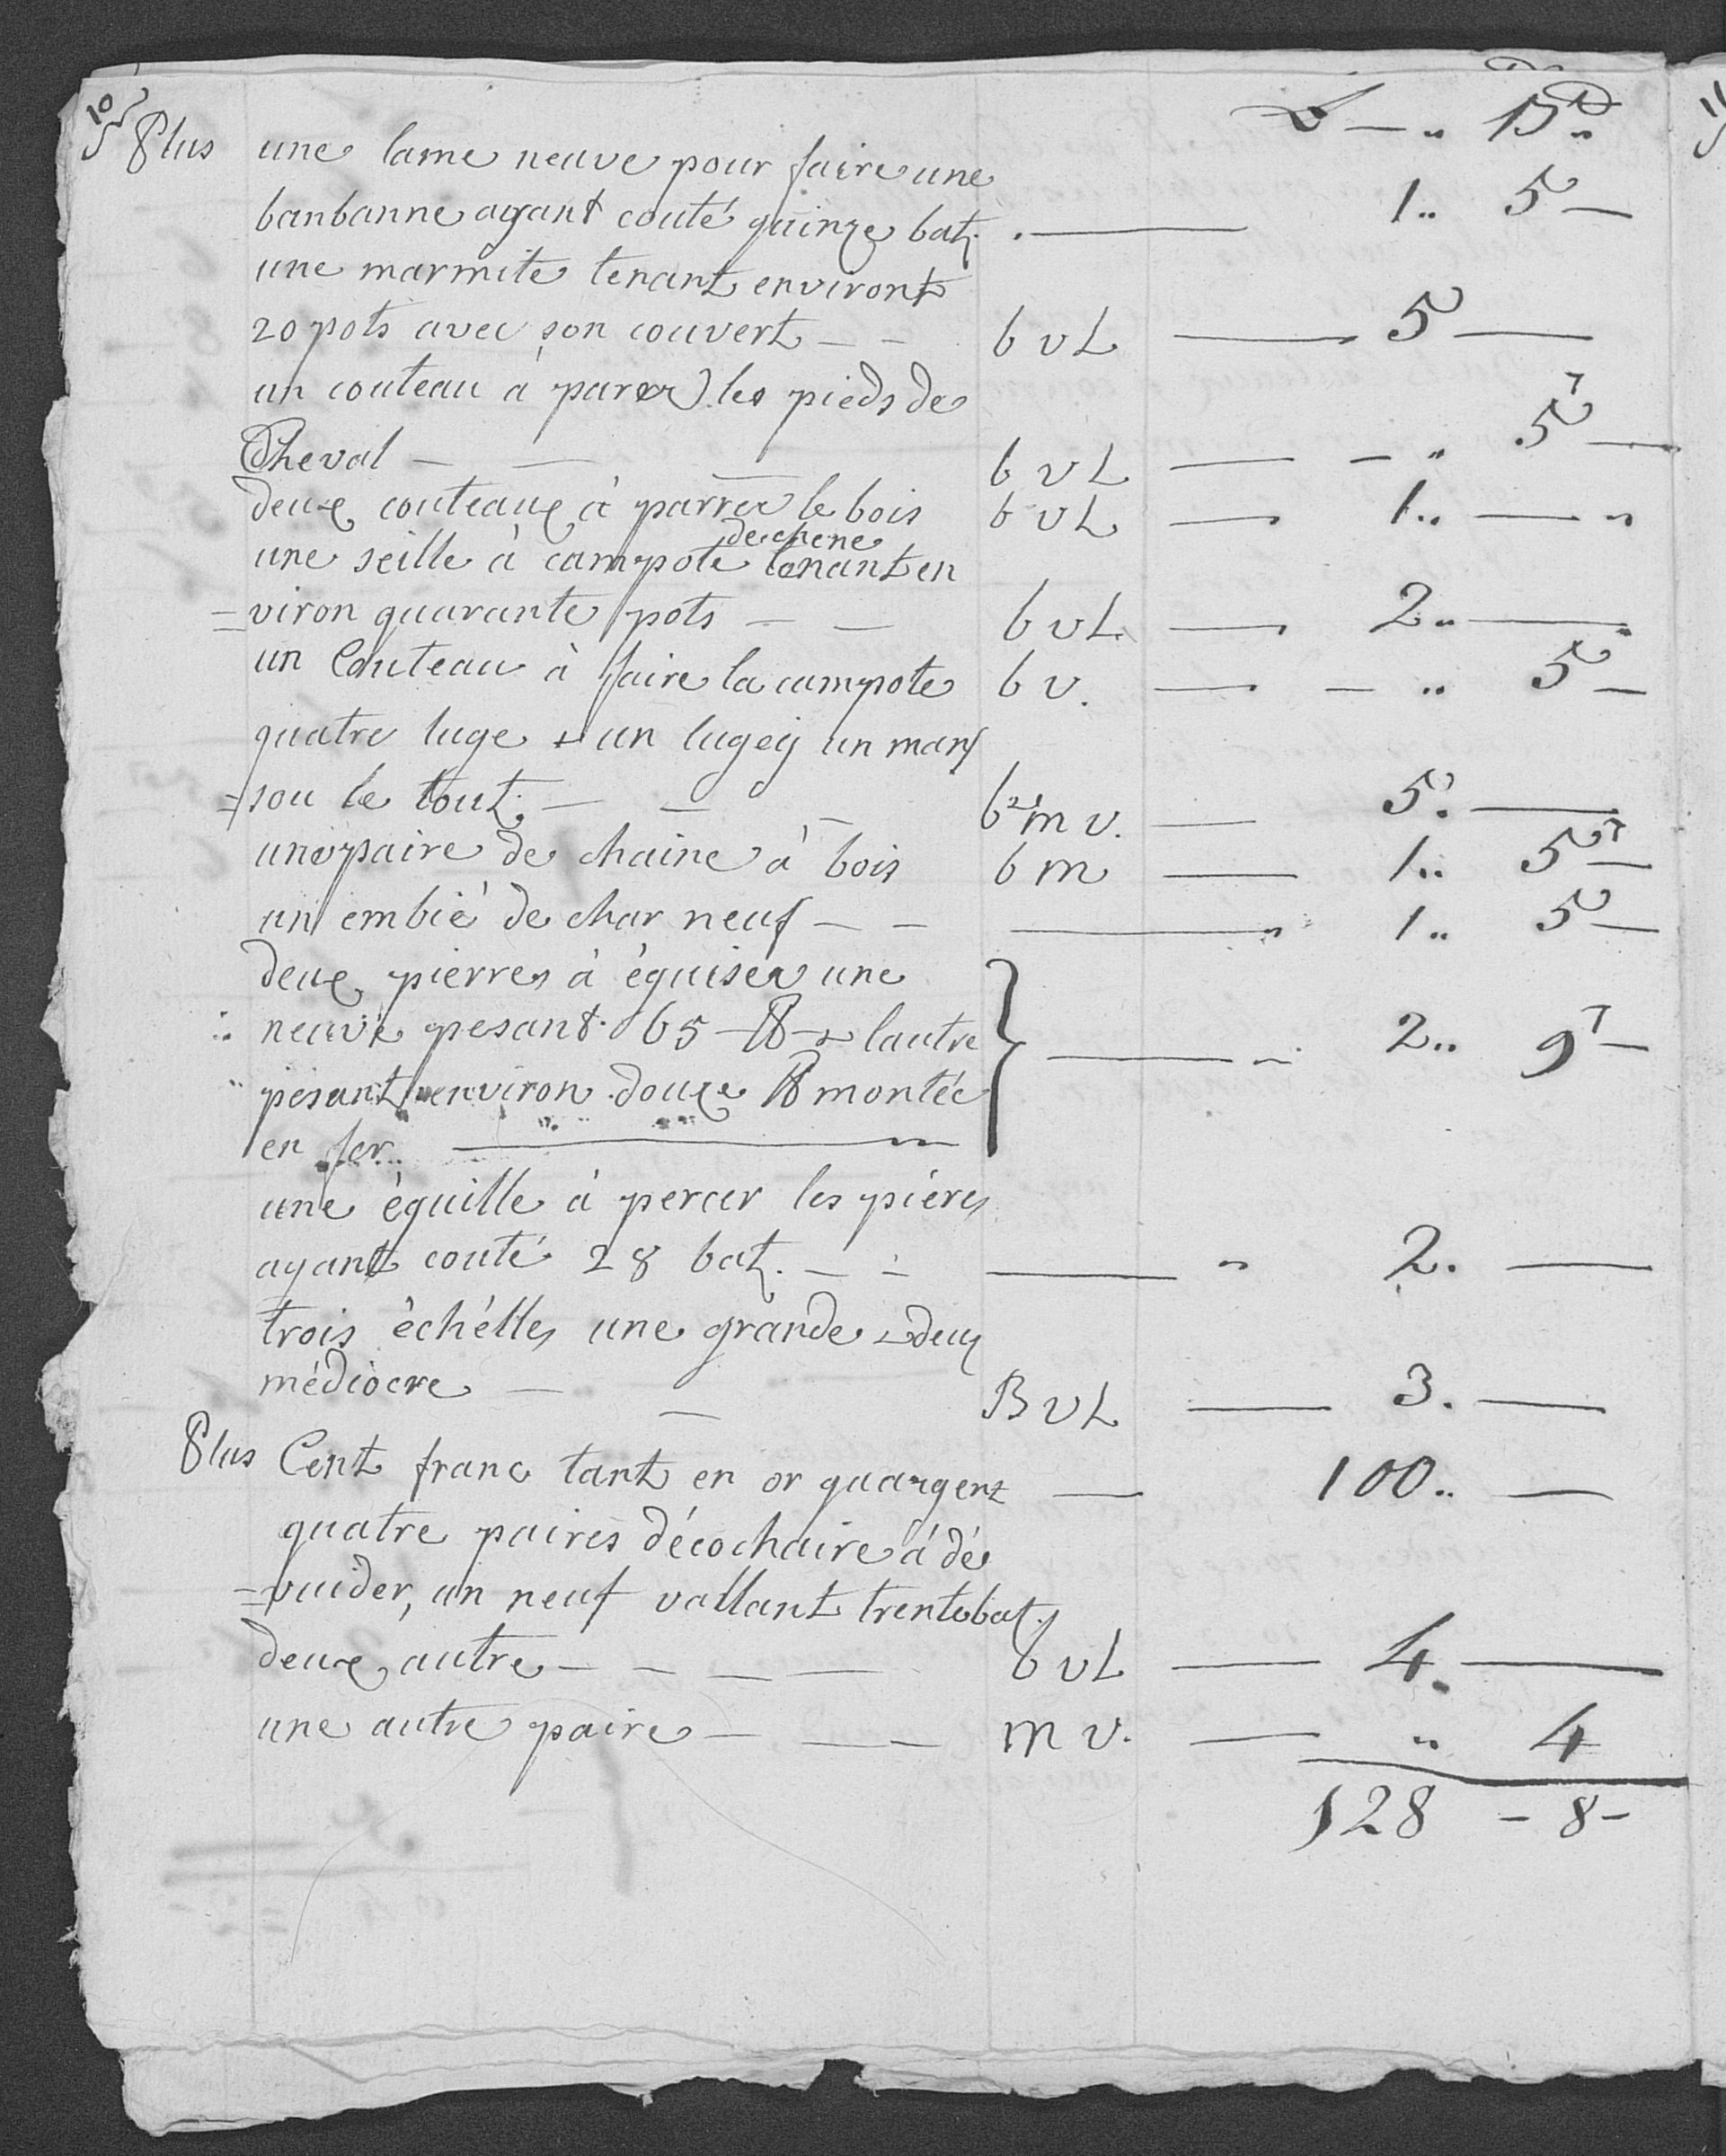 10
L — " B "
Plus une lame neuve pour faire une
banbanne ayant couté quinze batz. — 1 " 5 —
une marmite tenant environt
20 pots avec son couvert — — b v L — 5 —
un couteau à parer les pieds de
Cheval — — — b v L — — " 5 —
deux couteaux à parrer le bois b v L — 1 " — "
de chene
une seille à campote tenant en
= viron quarante pots — — b v L. — 2 " —
un Couteau à faire la campote b v. — — " 5 —
quatre luge & un lugey un mars
= sou le tout. — — — b m v. — 5. —
une paire de chaine à bois b m — 1 " 5 —
un embié de char neuf — — — " 1 " 5 —
deux pierres à équiser une
neuve pesant 65 ℔ & lautre — 2 " 9 —
pesant environ douze ℔ montée
en fer —
une èquille à percer les piéres
ayant couté 28 batz. — — — " 2. —
trois échélles une grande & deux
médiocre — — B v L — 3. —
Plus Cent franc tant en or quargent — 100 " —
quatre paires décochaire à dé
= vuider, un neuf vallant trente batz
deux autre — — — — b v L — 4. —
une autre paire — — — m v. — " 4
128 — 8 —
11